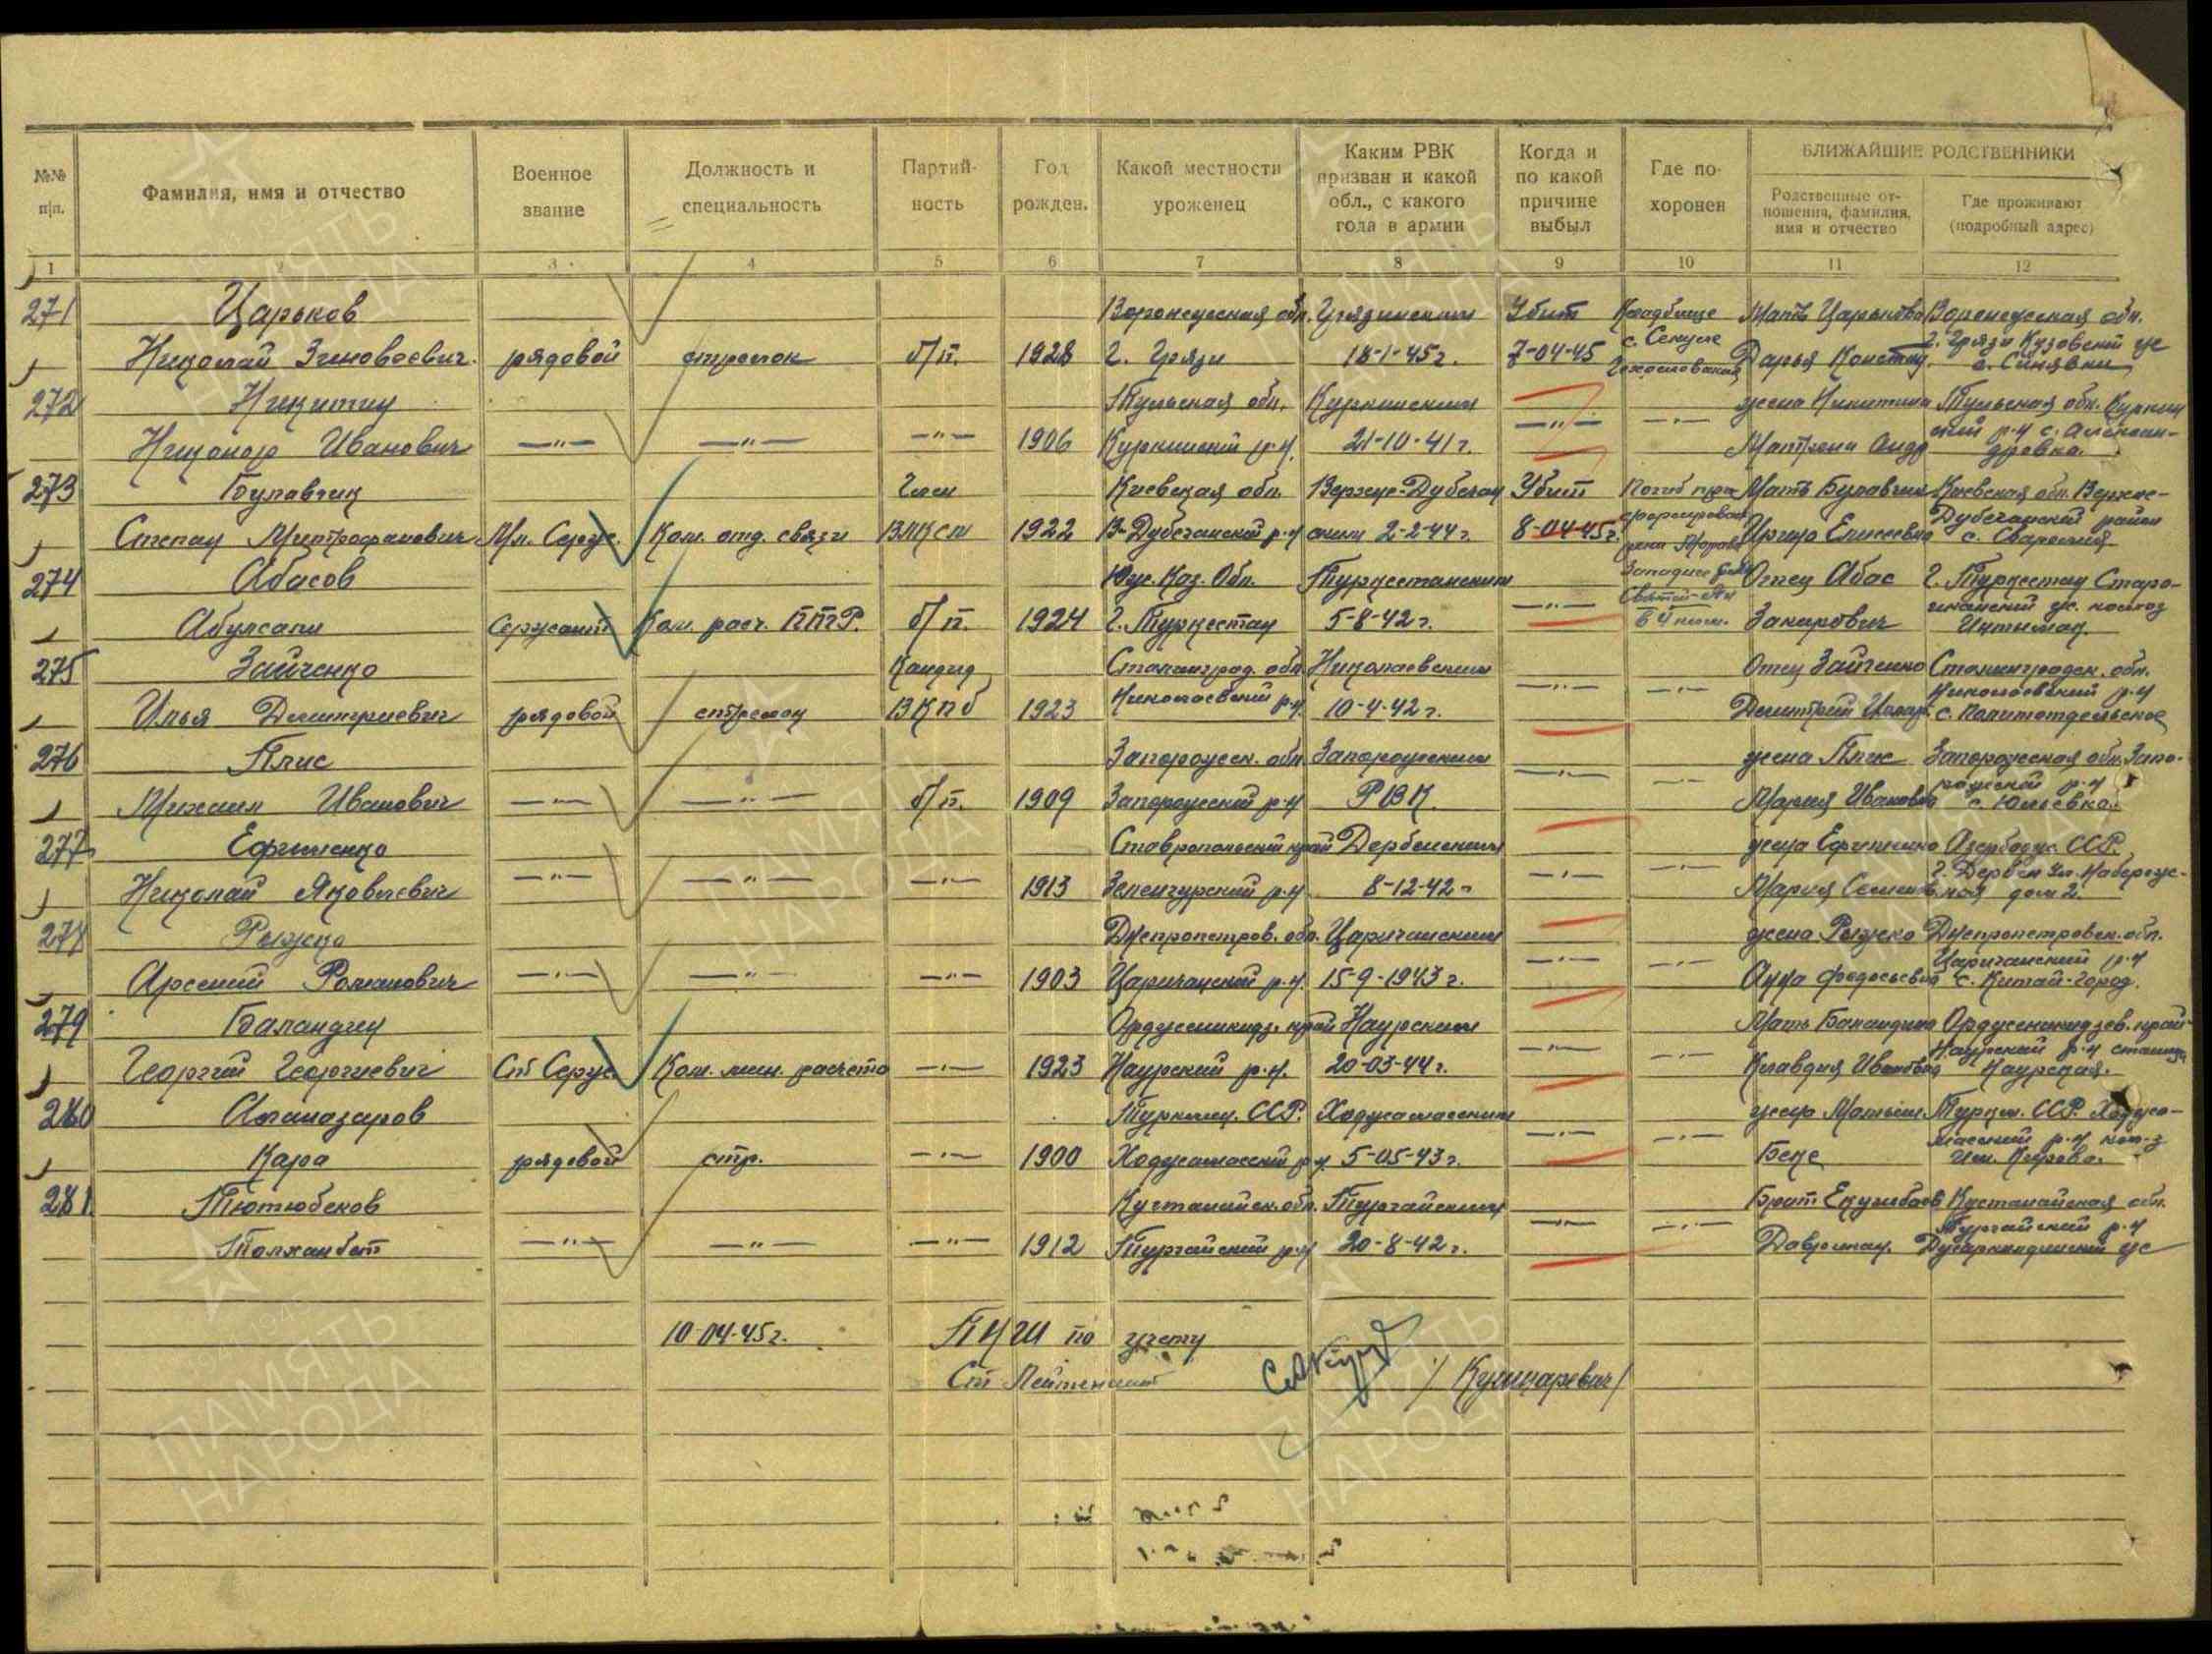 №№ п|п.
Фамилия, имя и отчество
Военное звание
Должность и специальность
Партий-ность
Год рожден.
Какой местности уроженец
Каким РВК призван и какой обл., с какого года в армии
Когда и по какой причине выбыл
Где по-хоронен
БЛИЖАЙШИЕ РОДСТВЕННИКИ
Родственные от-ношения, фамилия, имя и отчество
Где проживают (подробный адрес)
1 2 3 4 5 6 7 8 9 10 11 12
271 Царьков Воронежская обл. Грязинским Убит Кладбище Мать Царькова Воронежская обл.
Николай Зиновьевич рядовой стрелок б/п. 1928 г. Грязи 18-1-45г. 7-04-45 с. Чехословакия Дарья г. Грязи Кузовский с. Синявки
272 Никитин Тульская обл. Куркинским жена Никитина Тульская обл. Куркин
Никонор Иванович —"— —"— —"— 1906 Куркинский р-н. 21-10-41г. —"— —"— Матрена Андр ский р-н с. Алексан-дровка.
273 Булавчик Член Киевская обл. Верхне-Дубечан Убит Погиб при Мать Булавчик Киевская обл. Верхне-
Степан Митрофанович Мл. Серж. Ком. отд. связи ВЛКСМ 1922 В-Дубечанский р-н ским 2-2-44г. 8-04-45г. форсирован реки Морава Елисеевна Дубечанский район с. Сваромья
274 Абасов Юж. Каз. Обл. Туркестанским Западнее Отец Абас г. Туркестан Старо-
Абулсапи Сержант Ком. расч. ПТР. б/п. 1924 г. Туркестан 5-8-42г. —"— 6 4 км. Закирович колхоз
275 Зайченко Кандид Сталинград. обл. Николаевским Отец Зайченко Сталинградск. обл.
Илья Дмитриевич рядовой стрелок ВКПб 1923 Николаевский р-н. 10-4-42г. —"— —"— Дмитрий Николаевский р-н с. Политотдельское
276 Плис Запорожск. обл Запорожским жена Плис Запорожская обл. Запо-
Михаил Иванович —"— —"— б/п. 1909 Запорожский р-н РВК. —"— —"— Мария Ивановна рожский р-н с. Юльевка.
277 Ефименко Ставропольский край Дербенским жена Ефименко Азербайдж. ССР.
Николай Яковлевич —"— —"— —"— 1913 Зеленчукский р-н. 8-12-42г —"— —"— Мария Семенов. г. Дербен ул. Набереж-ная дом 2.
278 Рыжко Днепропетров. обл. Царичанским жена Рыжко Днепропетровск. обл.
Арсений Романович —"— —"— —"— 1903 Царичанский р-н. 15-9-1943г. —"— —"— Анна Федосьевна Царичанский р-н с. Китай-город.
279 Баландин Орджоникидз. край Наурским Мать Баландина Орджоникидзев. край
Георгий Георгиевич Ст Серж. Ком. мин. расчета —"— 1923 Наурский р-н. 20-03-44г. —"— —"— Клавдия Ивановна Наурский р-н станица Наурская.
280 Аманазаров Туркмен. ССР. Ходжамбасским жена Туркм. ССР. Ходжа-
Кара рядовой стр. —"— 1900 Ходжамбасский р-н 5-05-43г. —"— —"— Беке р-н кол-з им. Кирова.
281 Тютюбеков Кустанайск. обл. Тургайским Брат Кустанайская обл.
—"— —"— —"— 1912 Тургайский р-н 20-8-42г. —"— —"— Тургайский р-н
10-04-45г. ПНШ по учету
Ст Лейтенант /Кушнаревич/
ПАМЯТЬ НАРОДА